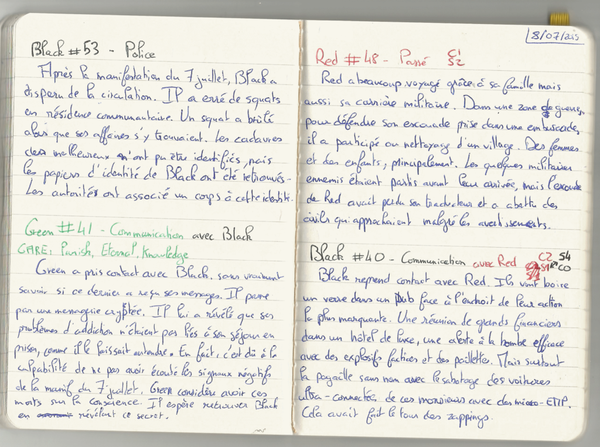 Black #53 - Police
Après la manifestation du 7 juillet, Black a
disparu de la circulation. Il a erré de squats
en résidence communautaire. Un squat a brûlé
alors que ses affaires s'y trouvaient. Les cadavres
des malheureux n'ont pu être identifiés, mais
les papiers d'identité de Black ont été retrouvés.
Les autorités ont associé un corps à cette identité.
Green #41 - Communication avec Black
CARE: Punish, Eternal, Knowledge
Green a pris contact avec Black, sans vraiment
savoir si ce dernier a reçu ses messages. Il passe
par une messagerie cryptée. Il lui a révélé que ses
problèmes d'addiction n'étaient pas liés à son séjour en
prison, comme il le laissait entendre. En fait, c'est dû à la
culpabilité de ne pas avoir écouté les signaux négatifs
de la manif du 7 juillet. Green considère avoir ces
morts sur la conscience. Il espère retrouver Black
en révélant ce secret.
8/07/213
Red #48 - Passé
Red a beaucoup voyagé grâce à sa famille mais
aussi sa carrière militaire. Dans une zone de guerre,
pour défendre son escouade prise dans une embuscade,
il a participé au nettoyage d'un village. Des femmes
et des enfants, principalement. Les quelques militaires
ennemis étaient partis avant leur arrivée, mais l'escouade
de Red avait perdu son traducteur et a abattu des
civils qui approchaient malgré les avertissements.
Black #40 - Communication avec Red C2 S4
C0
Black reprend contact avec Red. Ils vont boire
un verre dans un pub face à l'endroit de leur action
la plus marquante. Une réunion de grands financiers
dans un hôtel de luxe, une alerte à la bombe efficace
avec des explosifs factices et des paillettes. Mais surtout
la pagaille sans nom avec le sabotage des voitures
ultra-connectées de ces messieurs avec des micro-EMP.
Cela avait fait le tour des zappings.